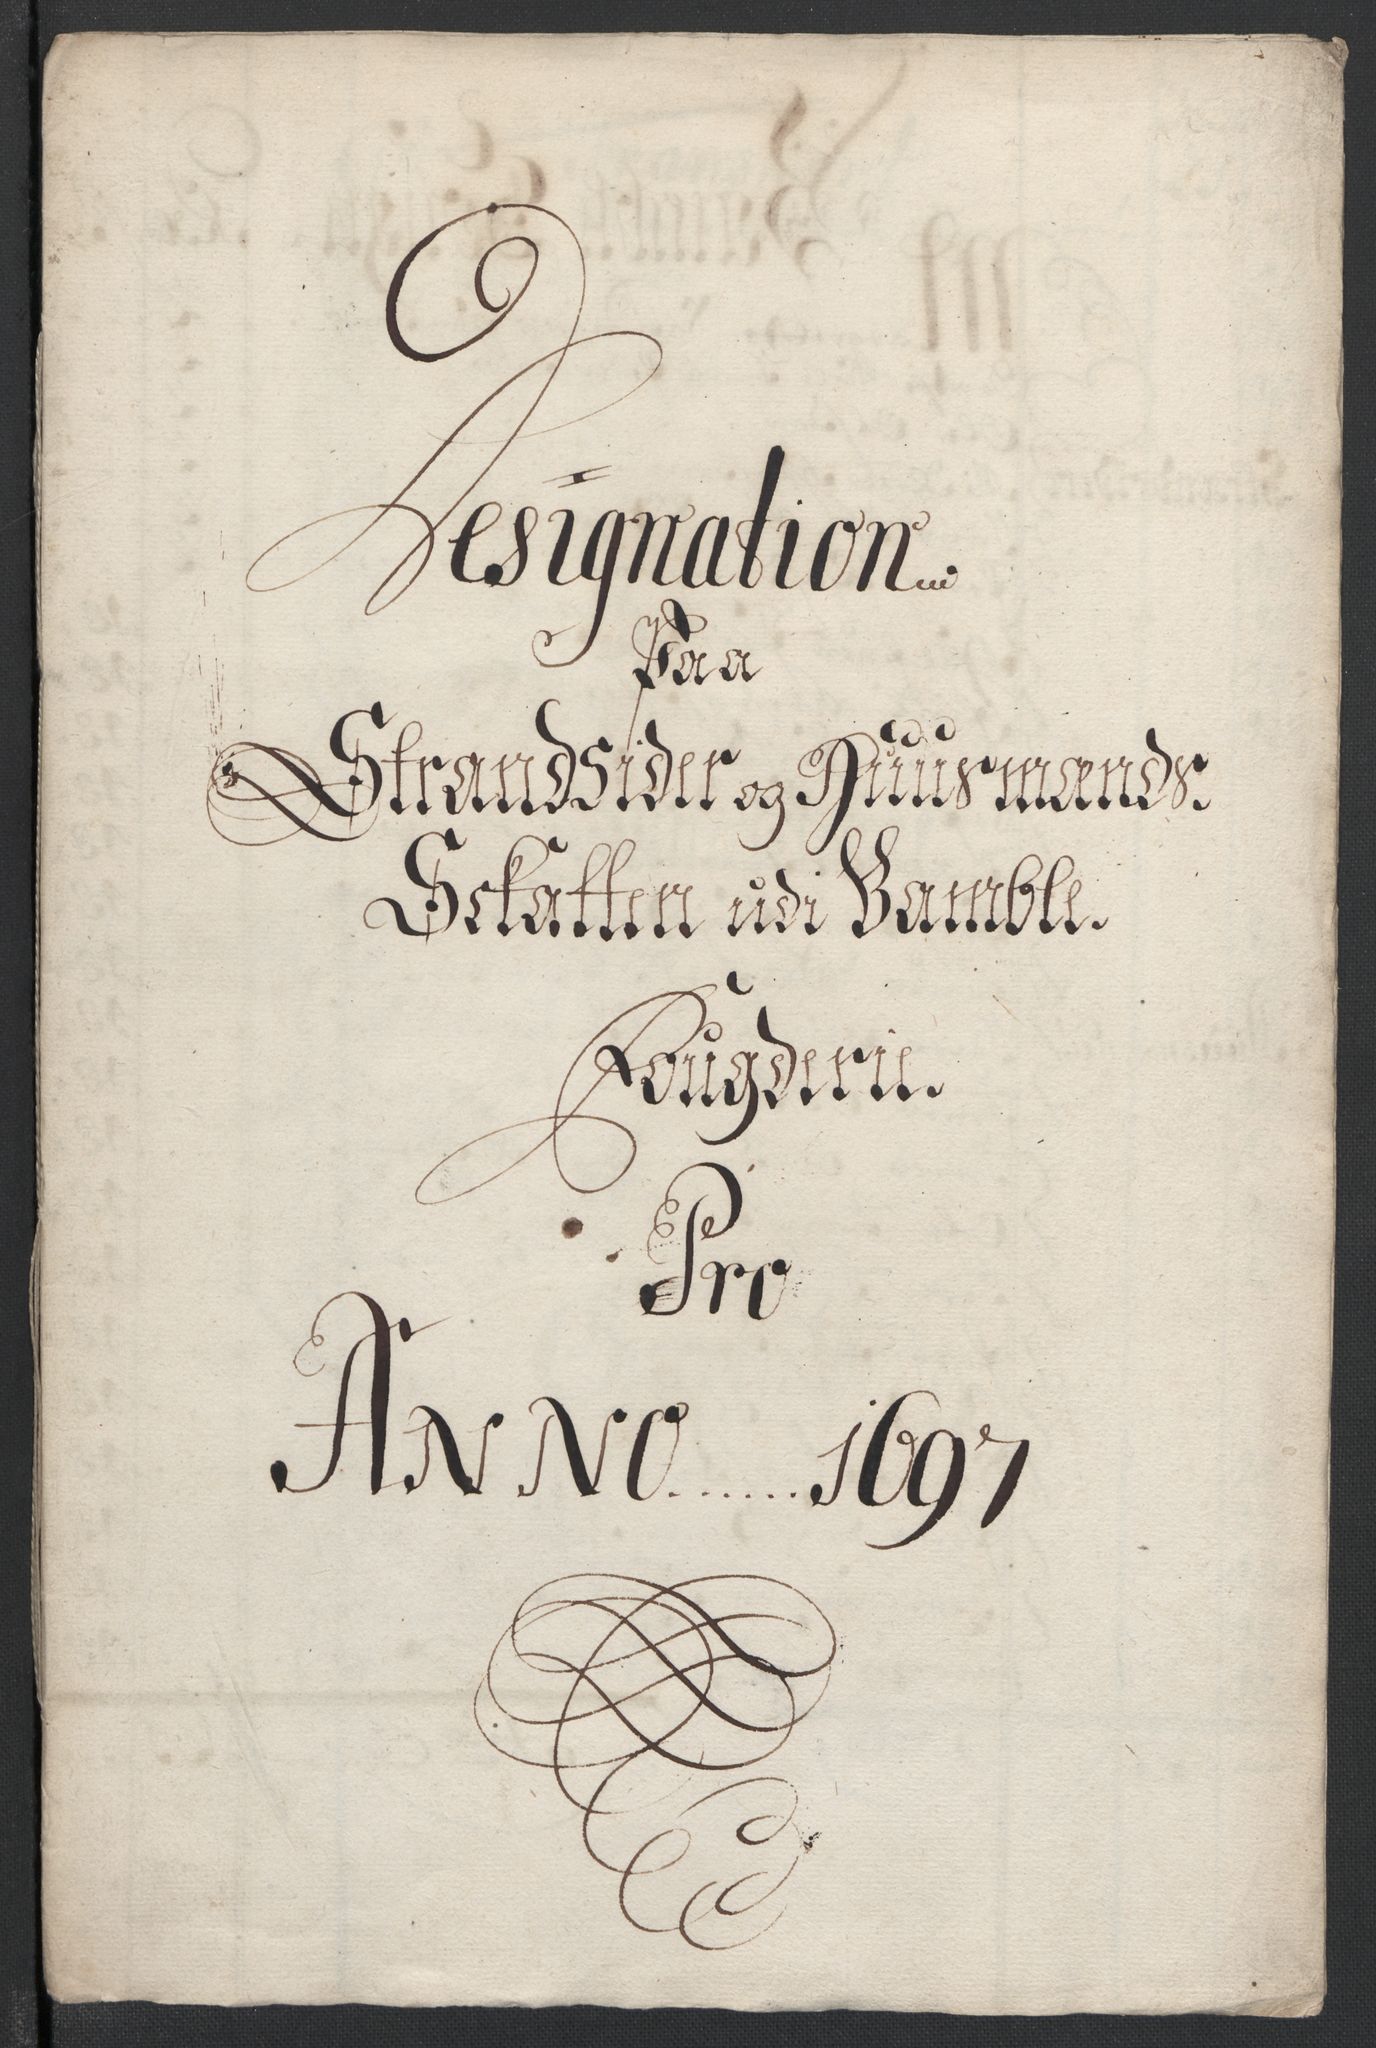 Designation
Paa
Strandsider og Huusmands
Sckatten udi Bamble.
Fougderie.
Pro
ANNO ...... 1697